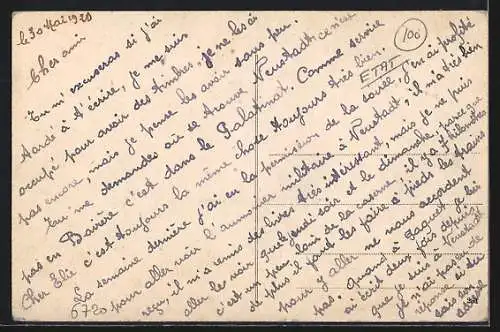 le 30 Mai 1920
Cher ami
Tu m'excuseras si j'ai
tardé à t'écrire, je me suis
occupé pour avoir des timbres, je ne les ai
pas encore, mais je pense les avoir sans peu.
Tu me demandes où se trouve Neustadt, ce n'est
pas en Bavière c'est dans le Palatinat. Comme service
Cher Elie c'est toujours la même chose toujours très bien.
La semaine dernière j'ai eu la permission de la soirée, j'en ai profité
pour aller voir l'aumônier militaire à Neustadt, il m'a très bien
reçu, il m'a remis des livres très intéressant, mais je ne puis
aller le voir que jeudi soir et le dimanche, parce que
c'est un peu loin de la caserne, il y a 7 kilomètres
de plus il faut les faire à pieds les trams
pour y aller ne nous accordent
pas. Quand à Huguet je lui
ai écrit deux fois depuis
que je suis à Neustadt
je n'ai pas eu de
réponse
100
ETAT
6720